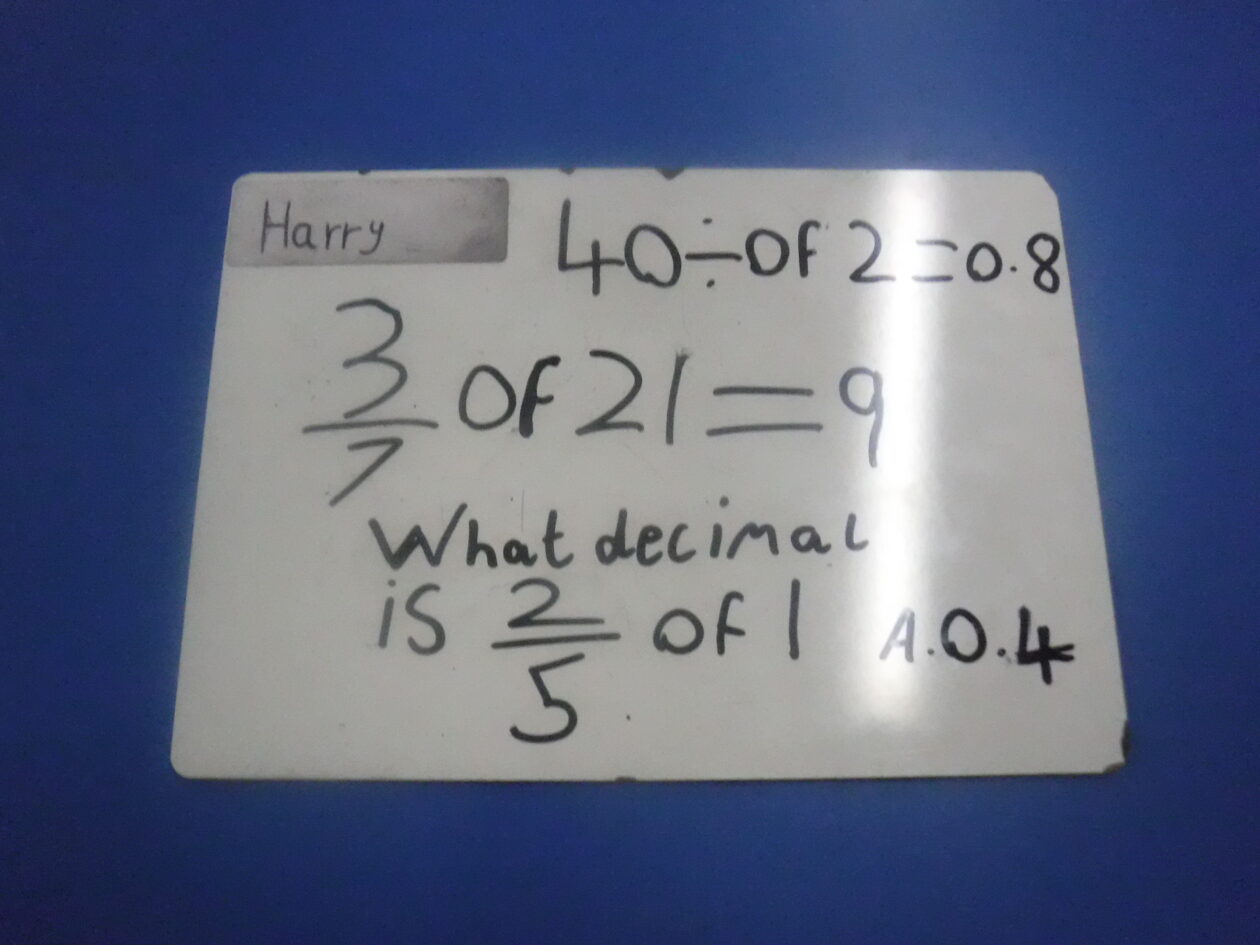 Harry
40÷of 2=0.8
3/7 of 21=9
What decimal
is 2/5 of 1 A.0.4